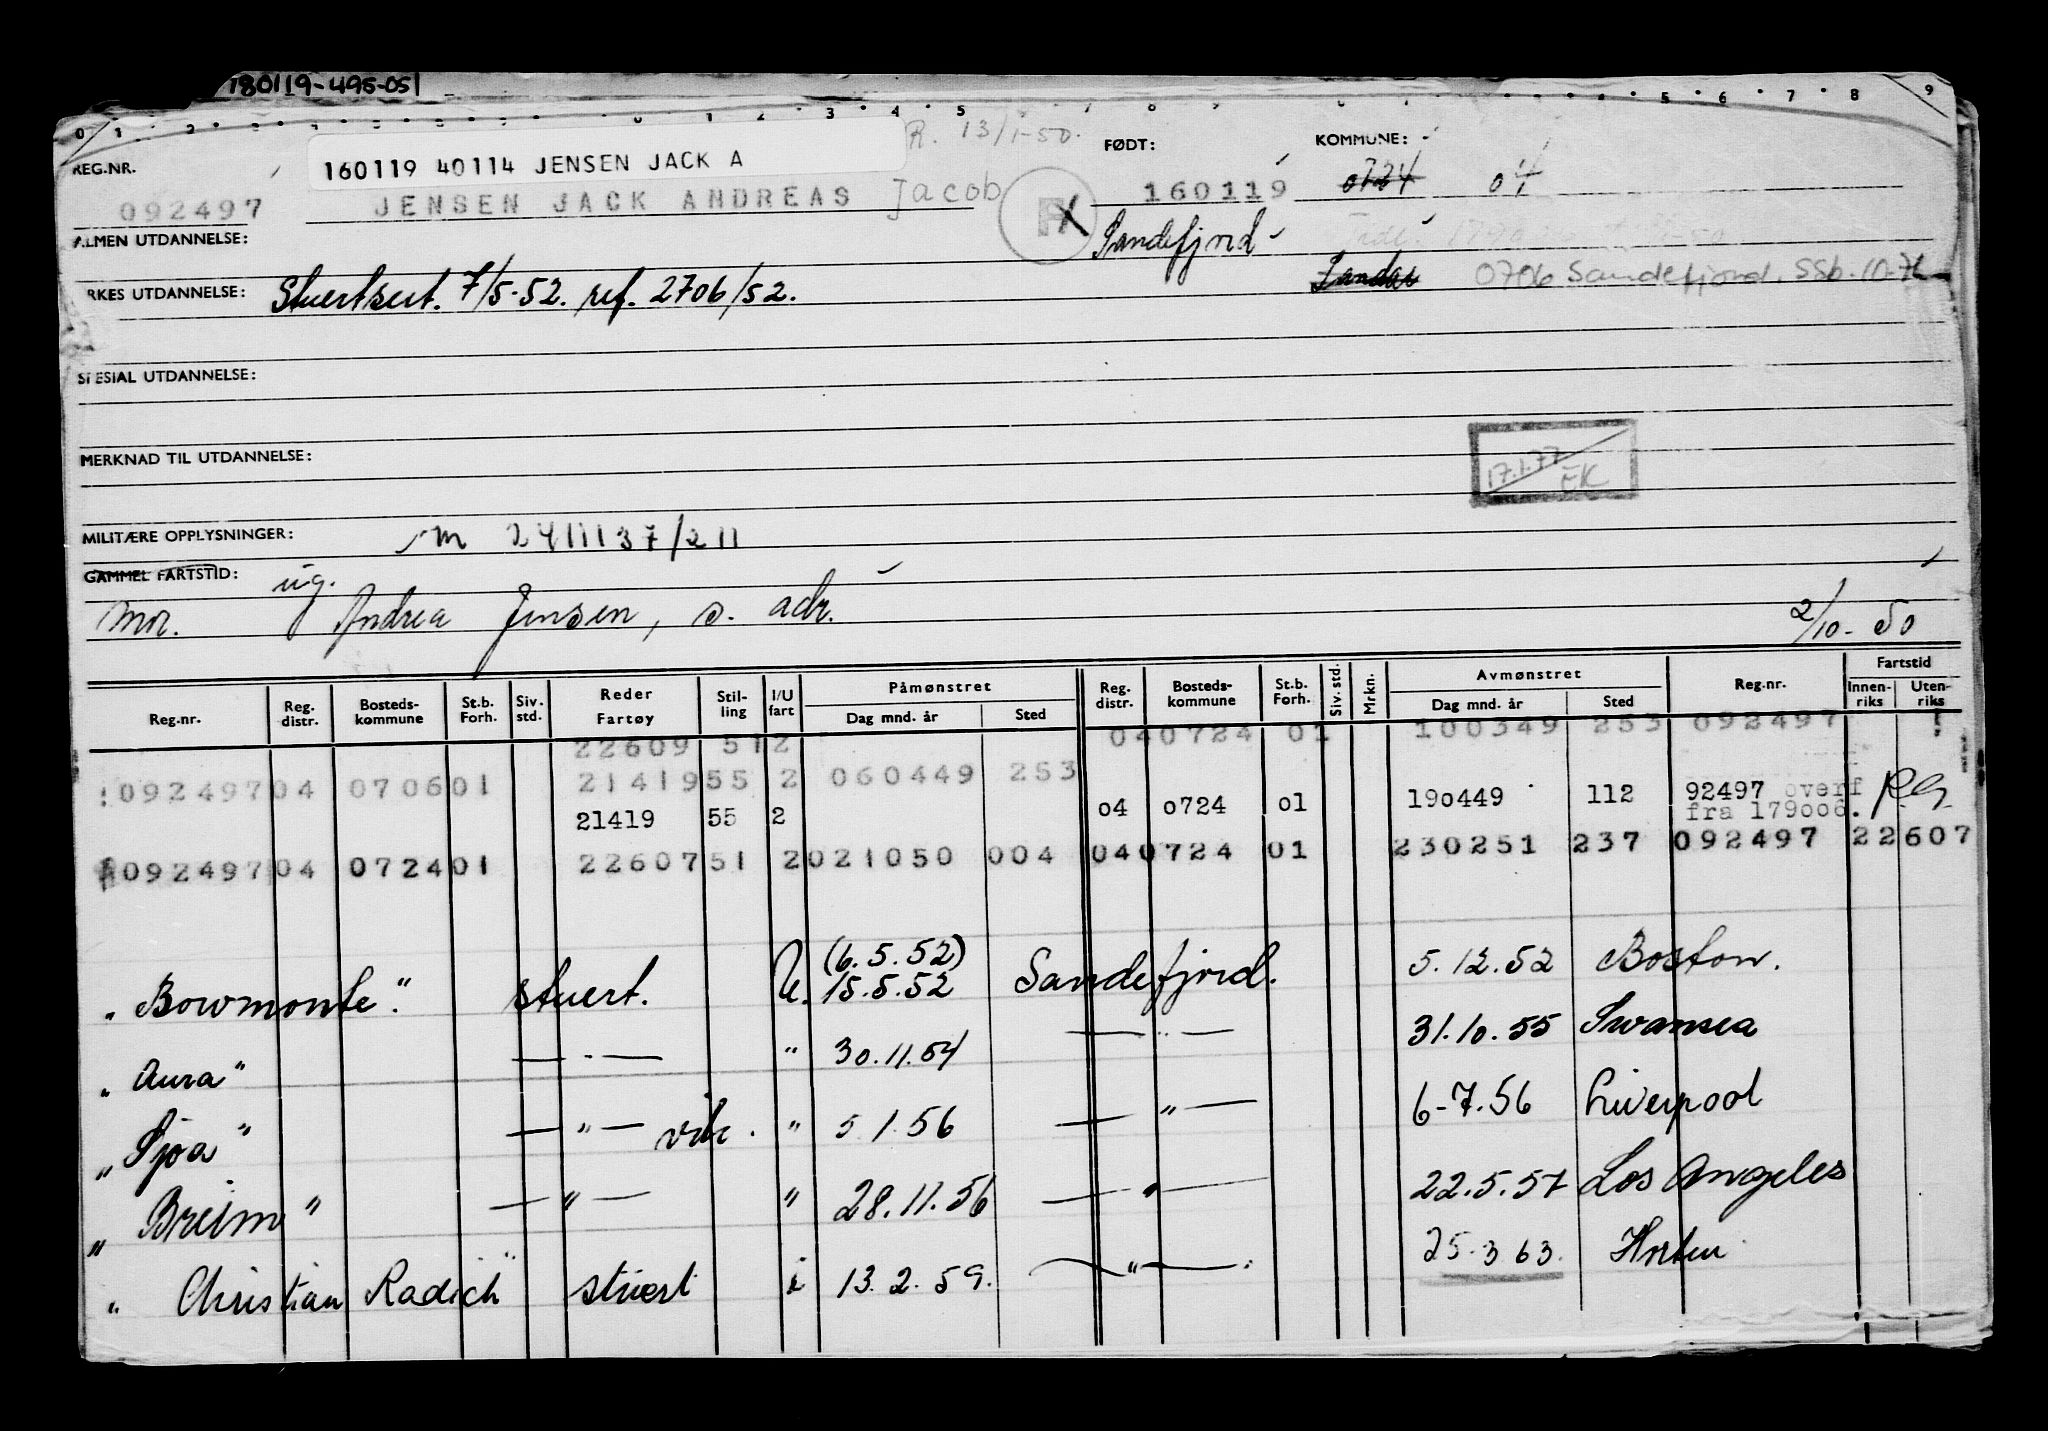 180119-495-051
0 1 2 3 4 5 6 7 8 9 0 1 2 3 4 5 6 7 8 9
R. 13/1-50.
REG.NR. 160119 40114 JENSEN JACK A FØDT: KOMMUNE:
092497 JENSEN JACK ANDREAS Jacob 160119 0724 04
ALMEN UTDANNELSE: Sandefjord
RKES UTDANNELSE: Stuertsert. 7/5-52. ref. 2706/52. Sandar 0706 Sandefjord. SSb. 10-71
SPESIAL UTDANNELSE:
MERKNAD TIL UTDANNELSE: 17.1.77 EK
MILITÆRE OPPLYSNINGER: m 2411137/211
GAMMEL FARTSTID: ug.
Mor. Andrea Jensen, s. adr. 2/10-50
Reg.nr. Reg. distr. Bosteds-kommune St.b. Forh. Siv. std. Reder Fartøy Stil-ling I/U fart Påmønstret Dag mnd. år Sted Reg. distr. Bosteds-kommune St.b. Forh. Siv. std. Mrkn. Avmønstret Dag mnd. år Sted Reg.nr. Fartstid Innen-riks Uten-riks
22609 51 2 04 0724 01 100349 253 092497
092497 04 0706 01 21419 55 2 060449 253
21419 55 2 04 0724 01 190449 112 92497 overf fra 179006.
092497 04 0724 01 22607 51 2 021050 004 04 0724 01 230251 237 092497 22607
"Bowmonte". stuert. U. (6.5.52) 15.5.52 Sandefjord. 5.12.52 Boston.
"Aura" — " — " 30.11.54 — " — 31.10.55 Swansea
"Sjoa" — " — vik. " 5.1.56 — " — 6-7.56 Liverpool
"Breim" — " — " 28.11.56 — " — 22.5.57 Los Angeles
"Christian Radich" stuert i 13.2.59. — " — 25.3 63. Horten